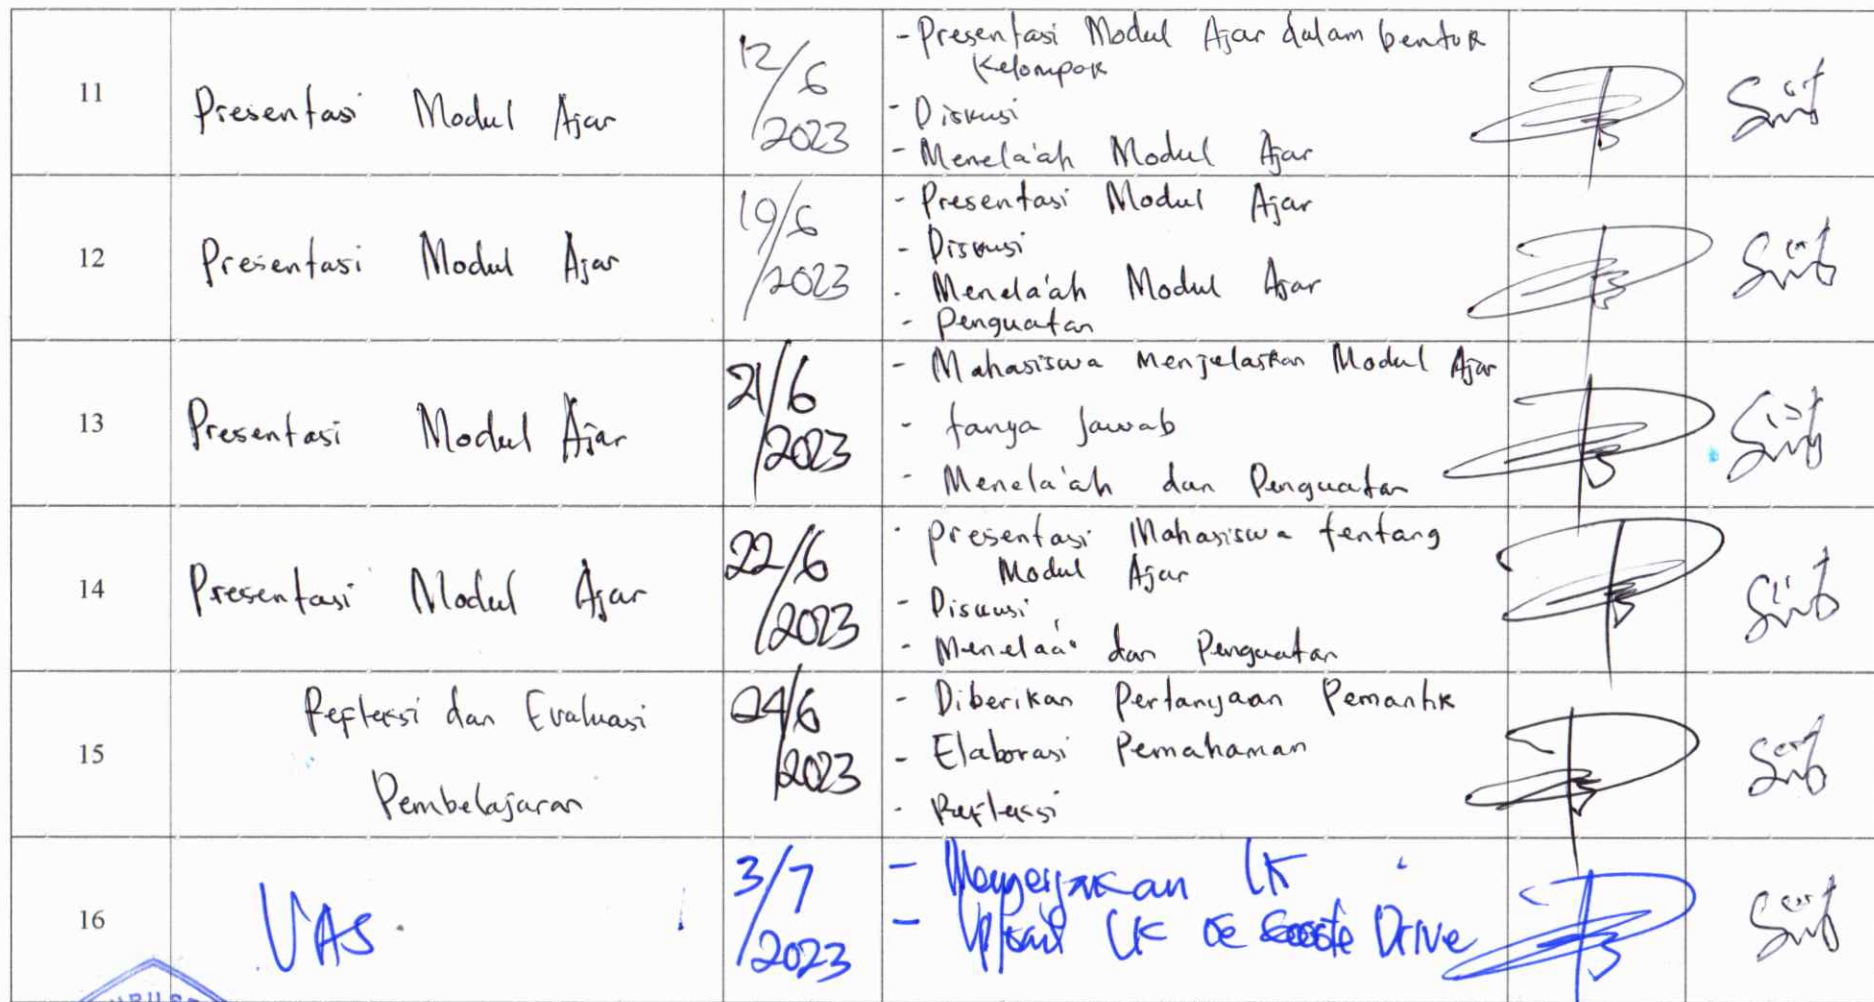 11
Presentasi Modul Ajar
12/6
2023
- Presentasi Modul Ajar dalam bentuk
Kelompok
- Diskusi
- Menela'ah Modul Ajar
12
Presentasi Modul Ajar
19/6
2023
- Presentasi Modul Ajar
- Diskusi
- Menela'ah Modul Ajar
- Penguatan
13
Presentasi Modul Ajar
21/6
2023
- Mahasiswa Menjelaskan Modul Ajar
- tanya Jawab
- Menela'ah dan Penguatan
14
Presentasi Modul Ajar
22/6
2023
- Presentasi Mahasiswa tentang
Modul Ajar
- Diskusi
- Menelaa' dan Penguatan
15
Refleksi dan Evaluasi
Pembelajaran
24/6
2023
- Diberikan Pertanyaan Pemantik
- Elaborasi Pemahaman
- Refleksi
16
UAS
3/7
2023
- Mengerjakan LK
- Upload LK ke Google Drive